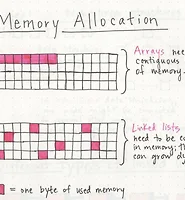 Memory Allocation
Arrays need
contiguous
of memory.
Linked lists
need to be
in memory; th
can grow d
= one byte of used memory